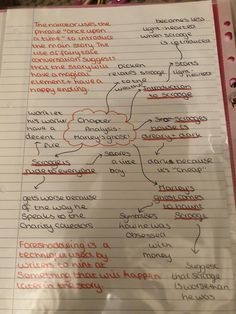 The narrator uses the
phrase "once upon
a time" to introduce
the main story. The
use of fairytale
conversation suggests
that the story will
have a magical
element + have a
happy ending.
becomes less
light-hearted
when Scrooge
is introduced
Dicken
relates Scrooge
to
weather
Starts
light-hearted
Introduction
to Scrooge
Chapter
Analysis-
Marley's ghost
won't let
his worker
have a
decent
fire
Scrooge is
rude to everyone
Scrooges
house is
dreary + dark
dark because
it's "cheap"
boy
gets worse because
of the way he
speaks to the
charity
Marley's
ghost comes
to haunt
Scrooge
how he was
obsessed
with
money
Suggest
that Scrooge
is worse than
he was
Foreshadowing is a
technique used by
writers to hint at
something that will happen
later in the story.